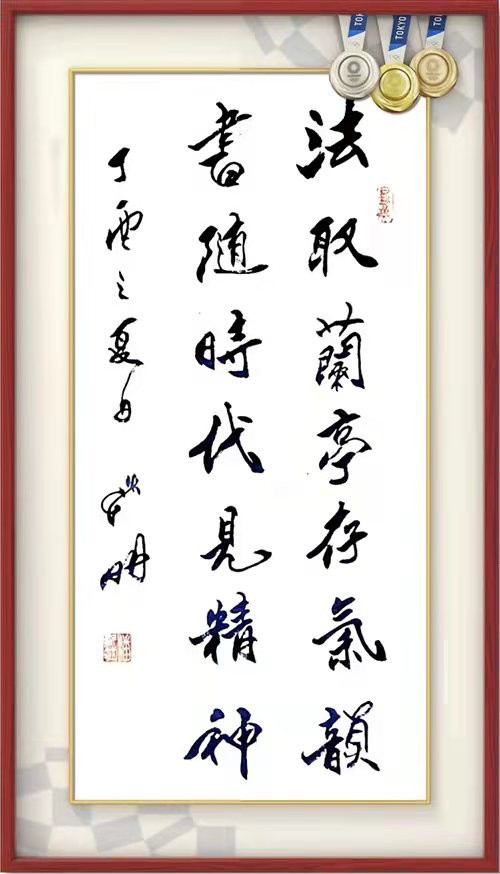 法取蘭亭存氣韻
書隨時代見精神
丁酉之夏日
明
TOKYO
TOKYO